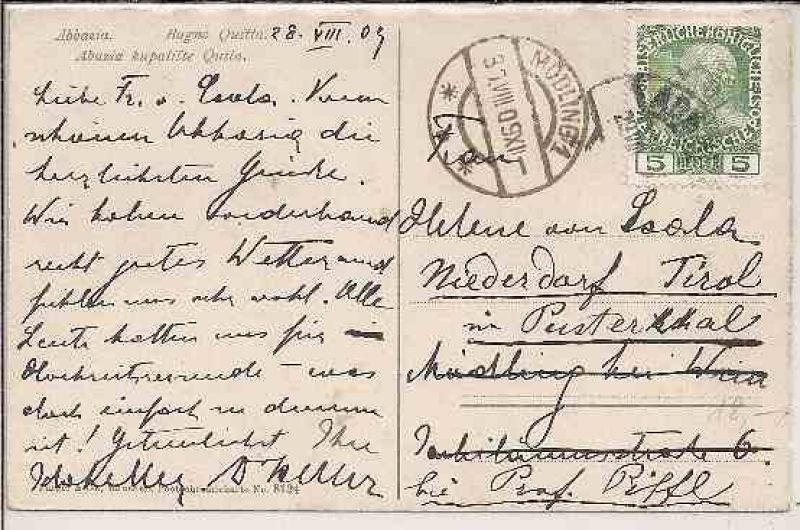 Abbazia. Ragno Quitta. 28. VIII. 09
Abazia kupalište Quita.
Liebe Fr. v. Scala. Vom
schönen Abbazia die
herzlichsten Grüße.
Wir haben vorderhand
recht gutes Wetter und
fühlen uns sehr wohl. Alle
Leute halten uns für
Hochzeitsreisende - was
doch einfach zu dumm
ist! Getreulichst Ihre
Keller
No. 8124
MÖDLING 1
5 HELLER 5
Frau
Helene von Scala
Niederdorf Tirol
im Pusterthal
Mödling bei Wien
Jubiläumsstrasse 6.
bei Prof. Riffl